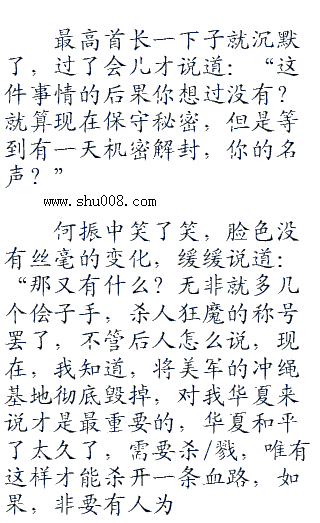 最高首长一下子就沉默
了，过了会儿才说道：“这
件事情的后果你想过没有？
就算现在保守秘密，但是等
到有一天机密解封，你的名
声？”
www.shu008.com
何振中笑了笑，脸色没
有丝毫的变化，缓缓说道：
“那又有什么？无非就多几
个侩子手，杀人狂魔的称号
罢了，不管后人怎么说，现
在，我知道，将美军的冲绳
基地彻底毁掉，对我华夏来
说才是最重要的，华夏和平
了太久了，需要杀/戮，唯有
这样才能杀开一条血路，如
果，非要有人为